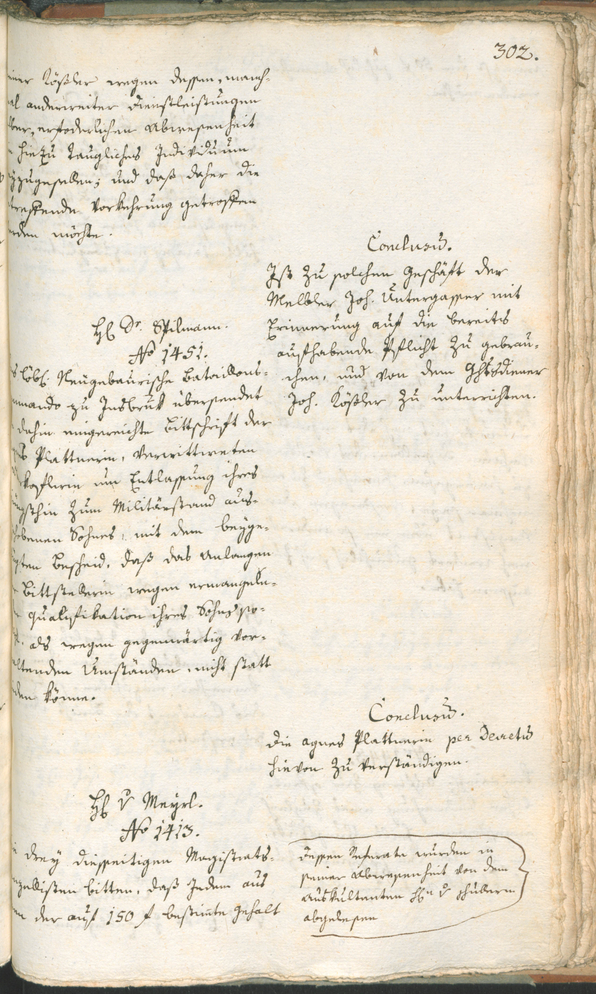 302.
iner Köstler wegen dessen, manch-
al anderweiter Dienstleistungen
ber, erforderlichen Abwesenheit
hiezu Taugliches Individuum
zugesellen; und daß daher die
treffende Vorkehrung getroffen
rden möchte.
Conclusũ.
Ist zu solchen Geschäft der
Melbler Joh. Untergasser mit
Erinnerung auf die bereits
aufhabende Pflicht zu gebrau-
chen, und von dem Ghtsdiener
Joh. Köstler zu unterrichten.
H. Dr. Spilmann.
No 1451.
s Löbl. Neugebaurische Bataillons-
mmando zu Insbruk übersendet
dahin eingereichte Bittschrift der
Plattnerin, verwittweten
um Entlassung ihres
hin zum Militärstand aus-
hobenen Sohnes, mit dem beyge-
ten Bescheid, daß das Anlangen
Bittstellerin wegen ermangeln-
qualifikation ihres Sohns so-
als wegen gegenwärtig vor-
ltenden Umständen nicht statt
den könne.
Conclusũ.
Die Agnes Plattnerin per Decretũ
hievon zu verständigen.
H. v Meyrl.
No 1413.
drey diesseitigen Magistrats-
nzellisten bitten, daß Jedem auf
der auf 150 f bestimte Gehalt
Dessen Referate wurden in
seiner Abwesenheit von dem
Auskultanten H.n v
abgelesen